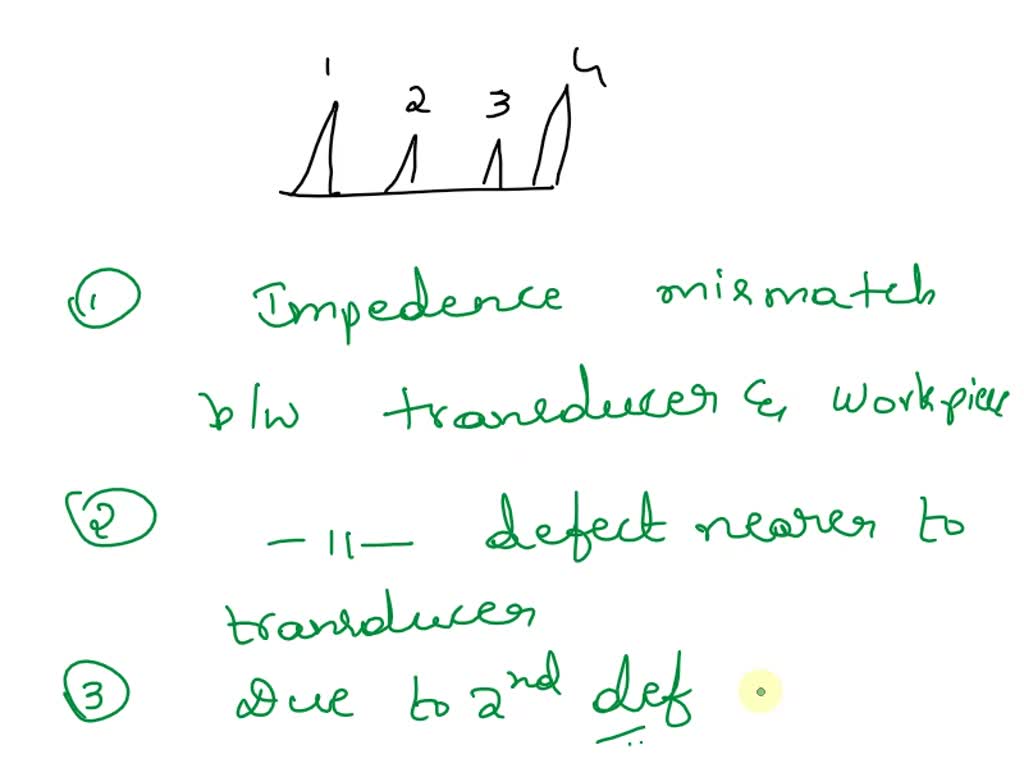 1 2 3 4
1 Impedence mismatch
b/w transducer & workpiece
2 -11- defect nearer to
transducer
3 Due to 2nd def